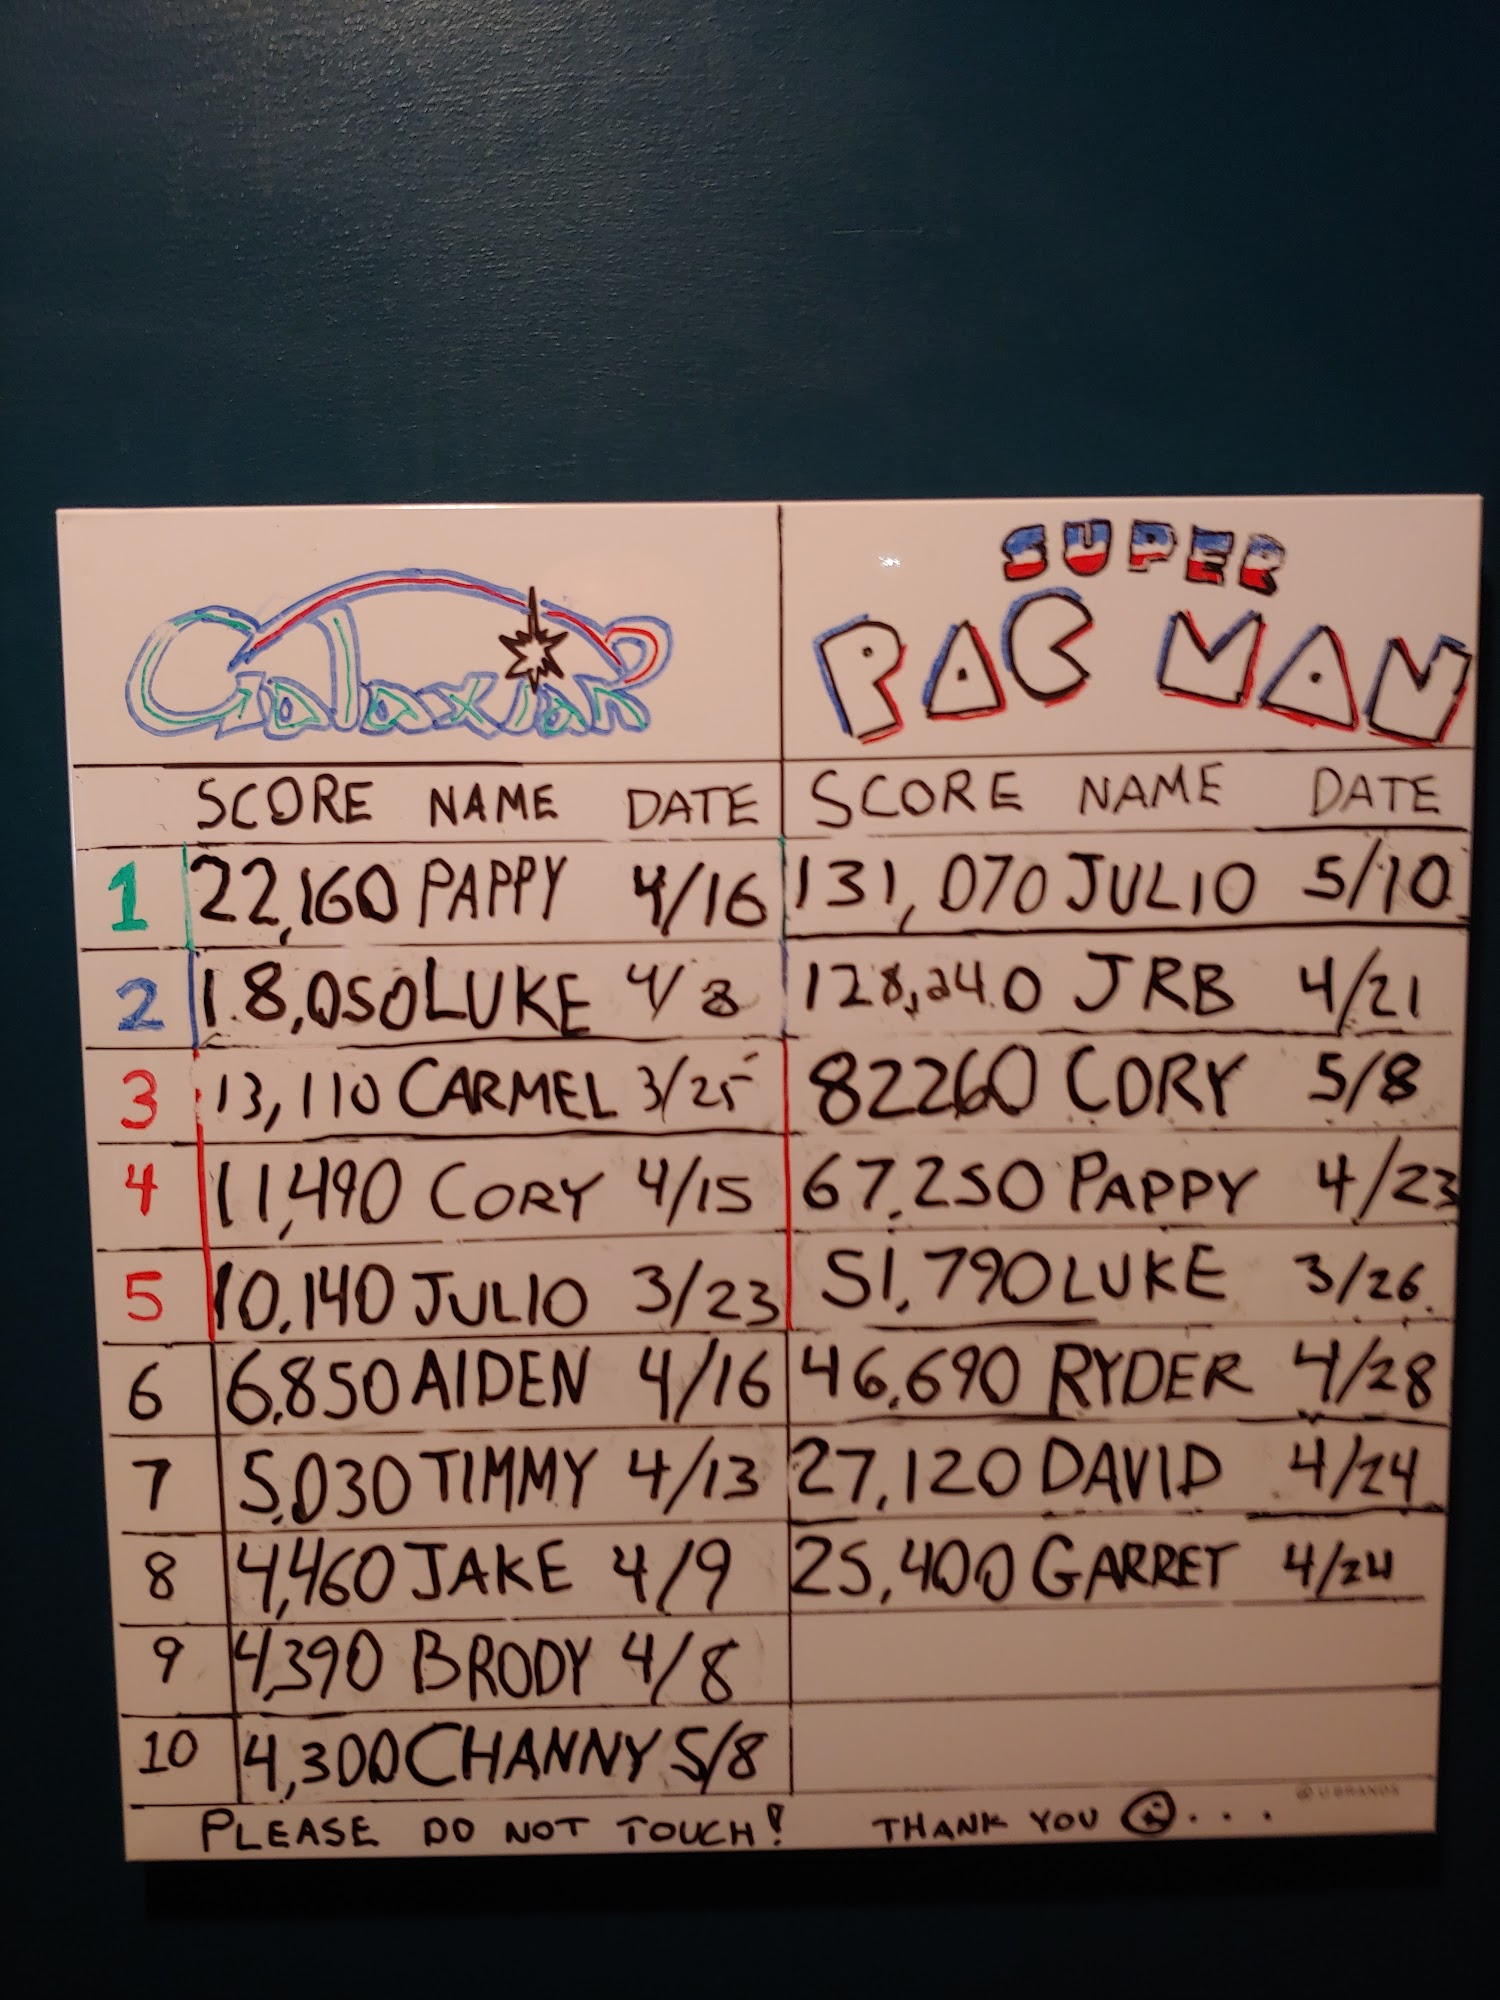 Galaxian
SUPER
PAC MAN
SCORE NAME DATE SCORE NAME DATE
1 22,160 PAPPY 4/16 131,070 JULIO 5/10
2 18,050 LUKE 4/8 128,240 JRB 4/21
3 13,110 CARMEL 3/25 82260 CORY 5/8
4 11,490 CORY 4/15 67,250 PAPPY 4/23
5 10,140 JULIO 3/23 51,790 LUKE 3/26
6 6,850 AIDEN 4/16 46,690 RYDER 4/28
7 5,030 TIMMY 4/13 27,120 DAVID 4/24
8 4,460 JAKE 4/9 25,400 GARRET 4/24
9 4,390 BRODY 4/8
10 4,300 CHANNY 5/8
U BRANDS
PLEASE DO NOT TOUCH! THANK YOU ...